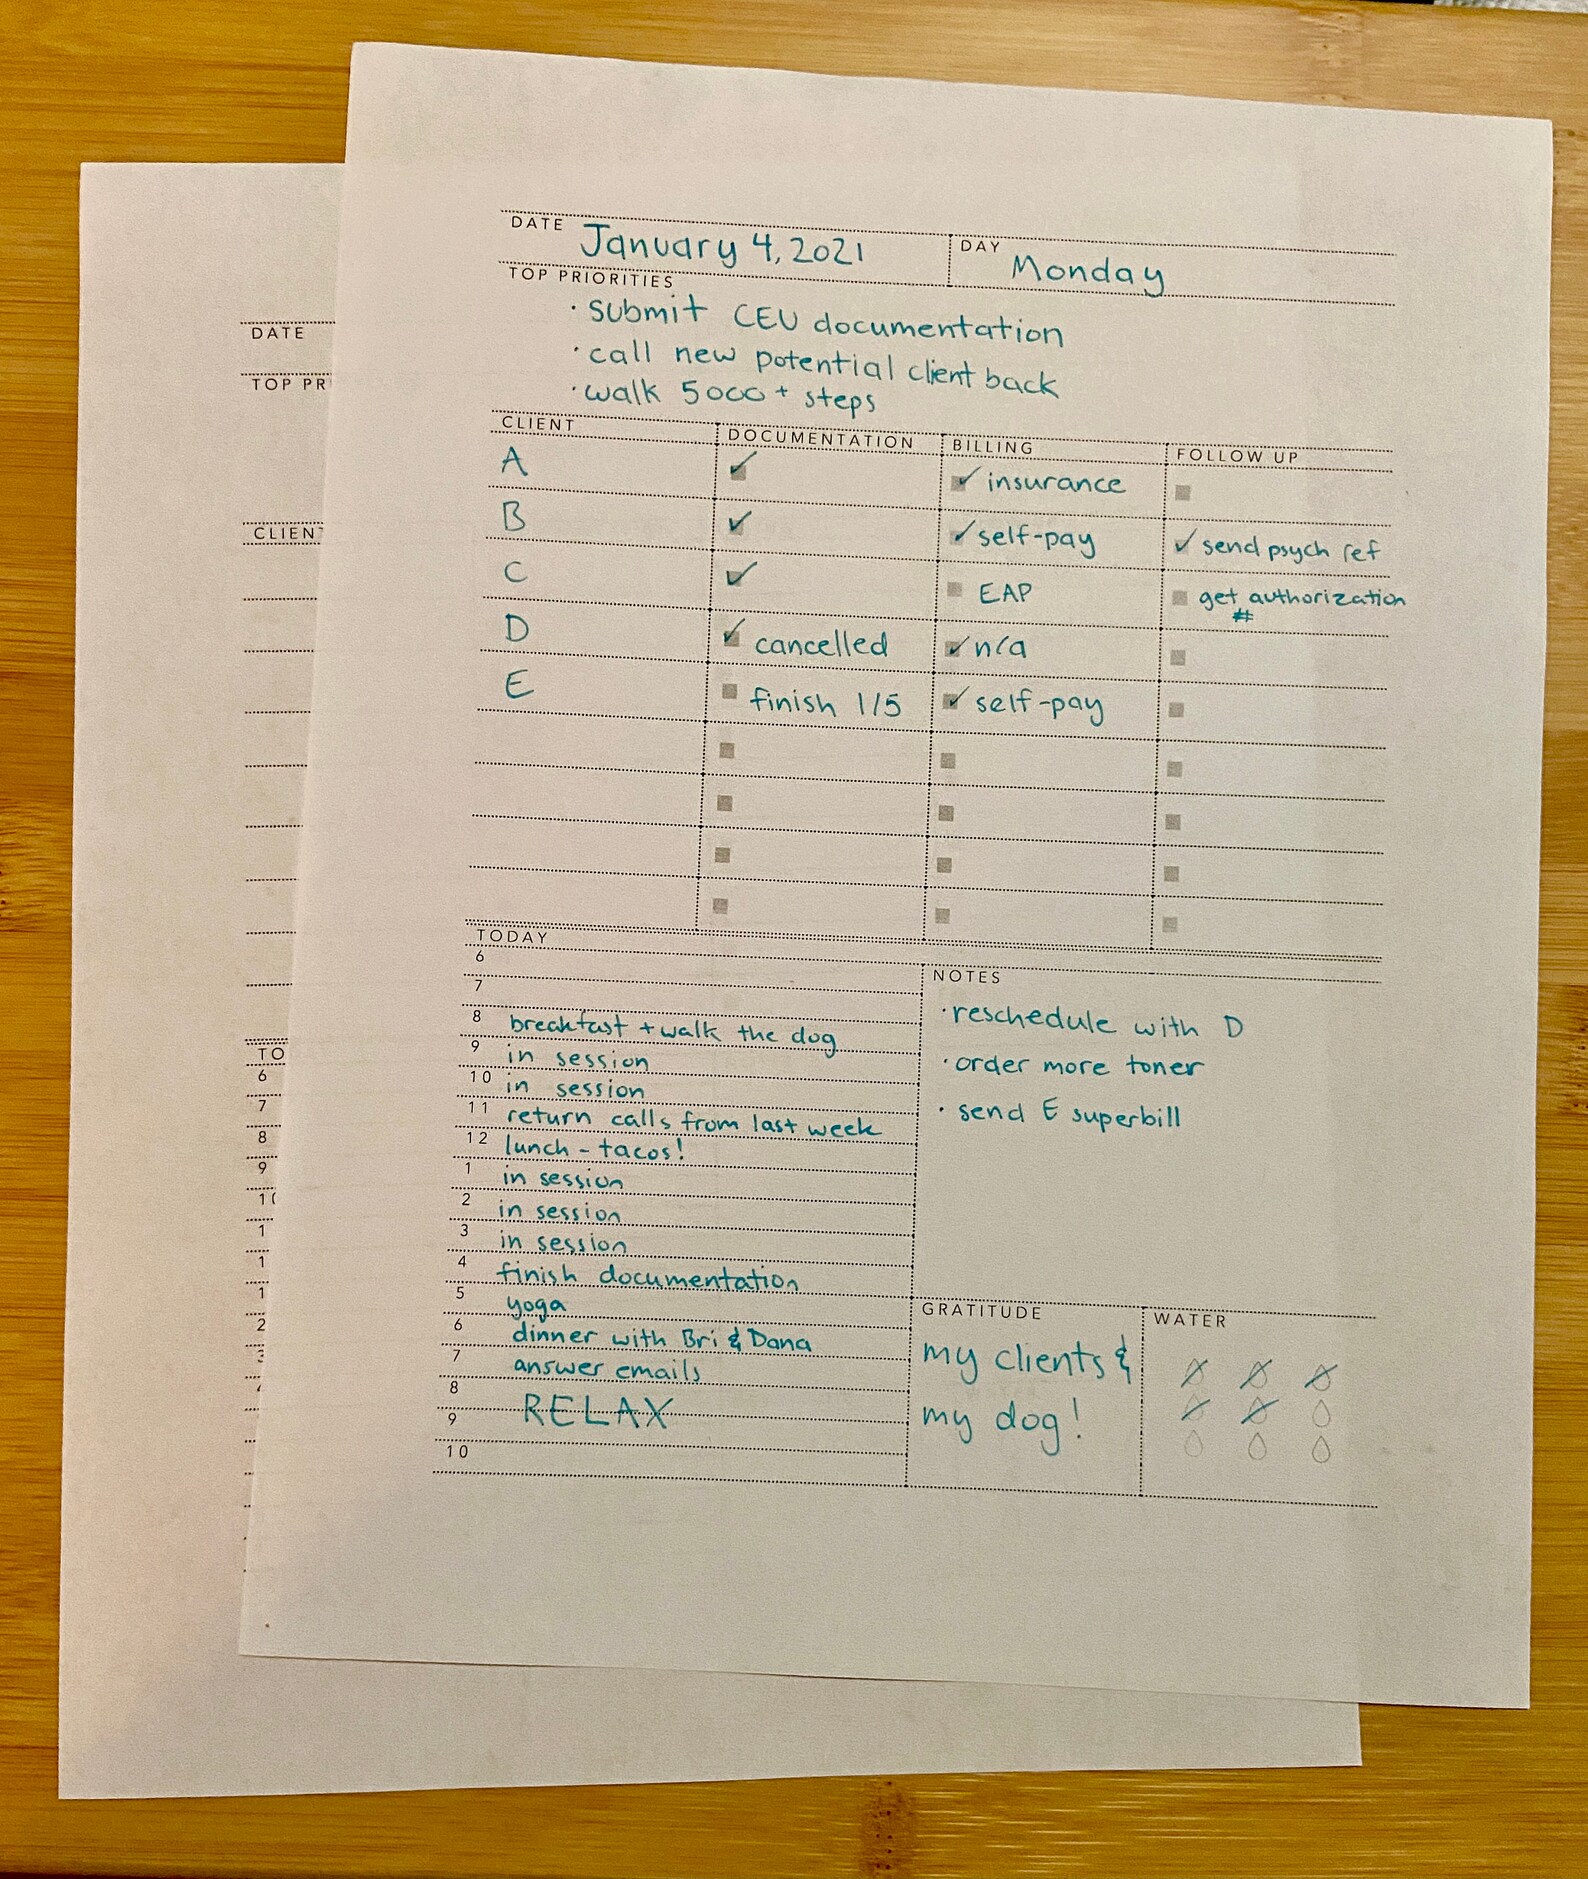 DATE January 4, 2021 DAY Monday
TOP PRIORITIES
· submit CEU documentation
· call new potential client back
· walk 5000+ steps
CLIENT DOCUMENTATION BILLING FOLLOW UP
A ✓ ✓ insurance
B ✓ ✓ self-pay ✓ send psych ref
C ✓ EAP get authorization
#
D ✓ cancelled ✓ n/a
E finish 1/5 ✓ self-pay
TODAY
6
7
8 breakfast + walk the dog
9 in session
10 in session
11 return calls from last week
12 lunch - tacos!
1 in session
2 in session
3 in session
4 finish documentation
5 yoga
6 dinner with Bri & Dana
7 answer emails
8 RELAX
9
10
NOTES
· reschedule with D
· order more toner
· send E superbill
GRATITUDE
my clients &
my dog!
WATER
DATE
TOP PR
CLIENT
TO
6
7
8
9
1
1
1
2
3